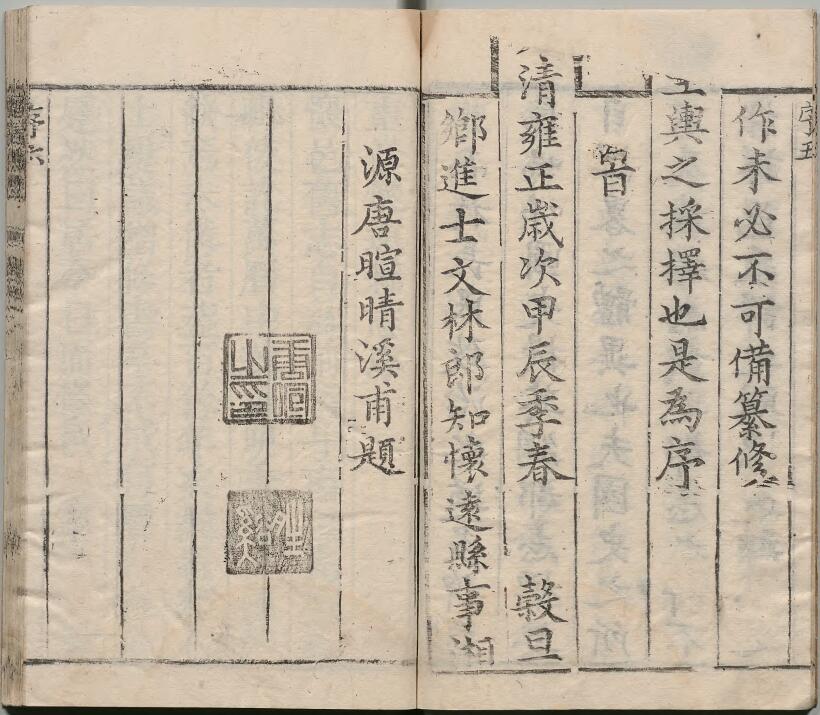 序五
作未必不可備纂修
輿之採擇也是為序
旹
清雍正歲次甲辰季春　穀旦
鄉進士文林郎知懷遠縣事湘
源唐暄晴溪甫題
唐暄之印
序六